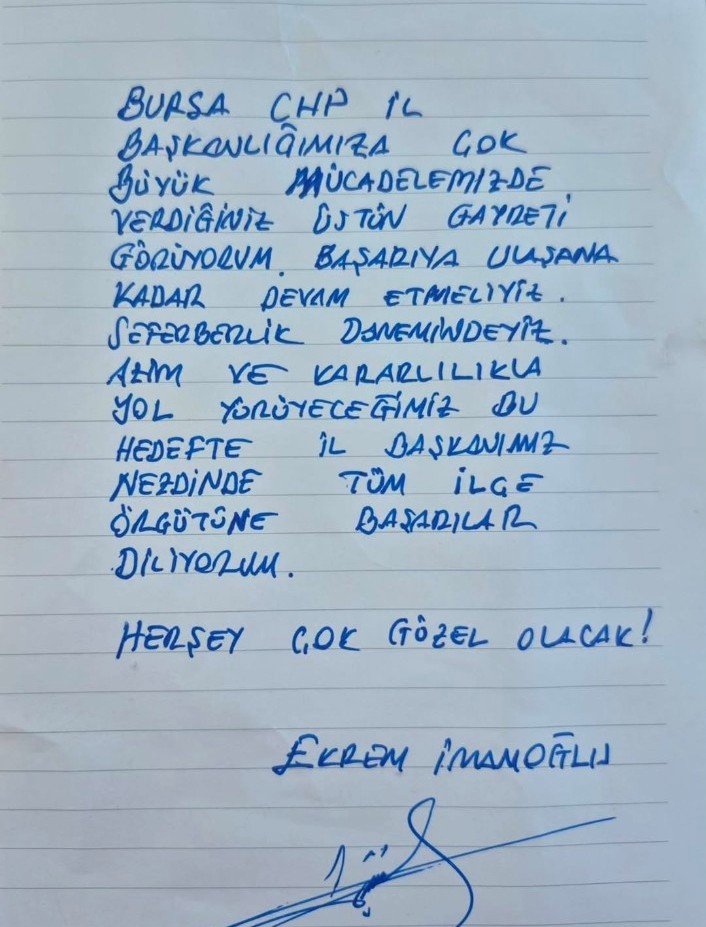 BURSA CHP İL
BAŞKANLIĞIMIZA ÇOK
BÜYÜK MÜCADELEMİZDE
VERDİĞİNİZ ÜSTÜN GAYRETİ
GÖRÜYORUM. BAŞARIYA ULAŞANA
KADAR DEVAM ETMELİYİZ.
SEFERBERLİK DÖNEMİNDEYİZ.
AZİM VE KARARLILIKLA
YOL YÜRÜYECEĞİMİZ BU
HEDEFTE İL BAŞKANIMIZ
NEZDİNDE TÜM İLÇE
ÖRGÜTÜNE BAŞARILAR
DİLİYORUM.
HERŞEY ÇOK GÜZEL OLACAK!
EKREM İMAMOĞLU